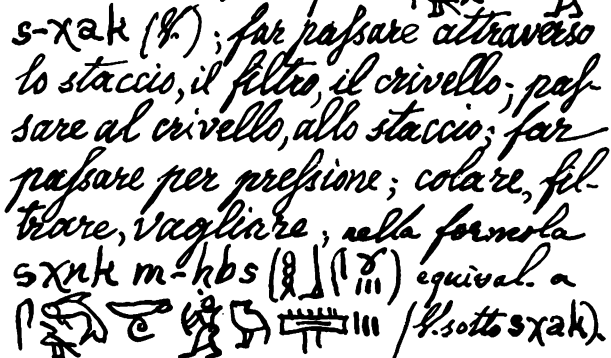 s-χak (V.); far paſsare attraverso
lo staccio, il filtro, il crivello; paſ-
sare al crivello, allo staccio; far
paſsare per preſsione; colare, fil-
trare, vagliare; nella formola
sχnk m-hbs ( ) ( ) equival. a
(V. sotto sχak).